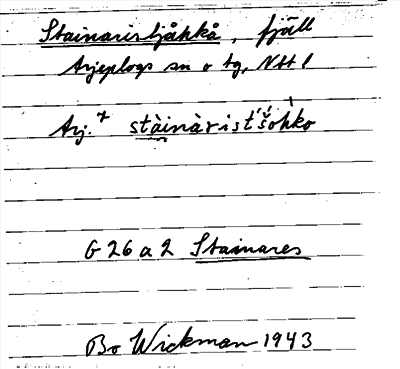 Stainaristjåkkå, fjäll
Arjeplogs sn o tg, Ntt l
Arj.× stàinàrist'šohko
G 26 a 2 Stainares
Bo Wickman 1943